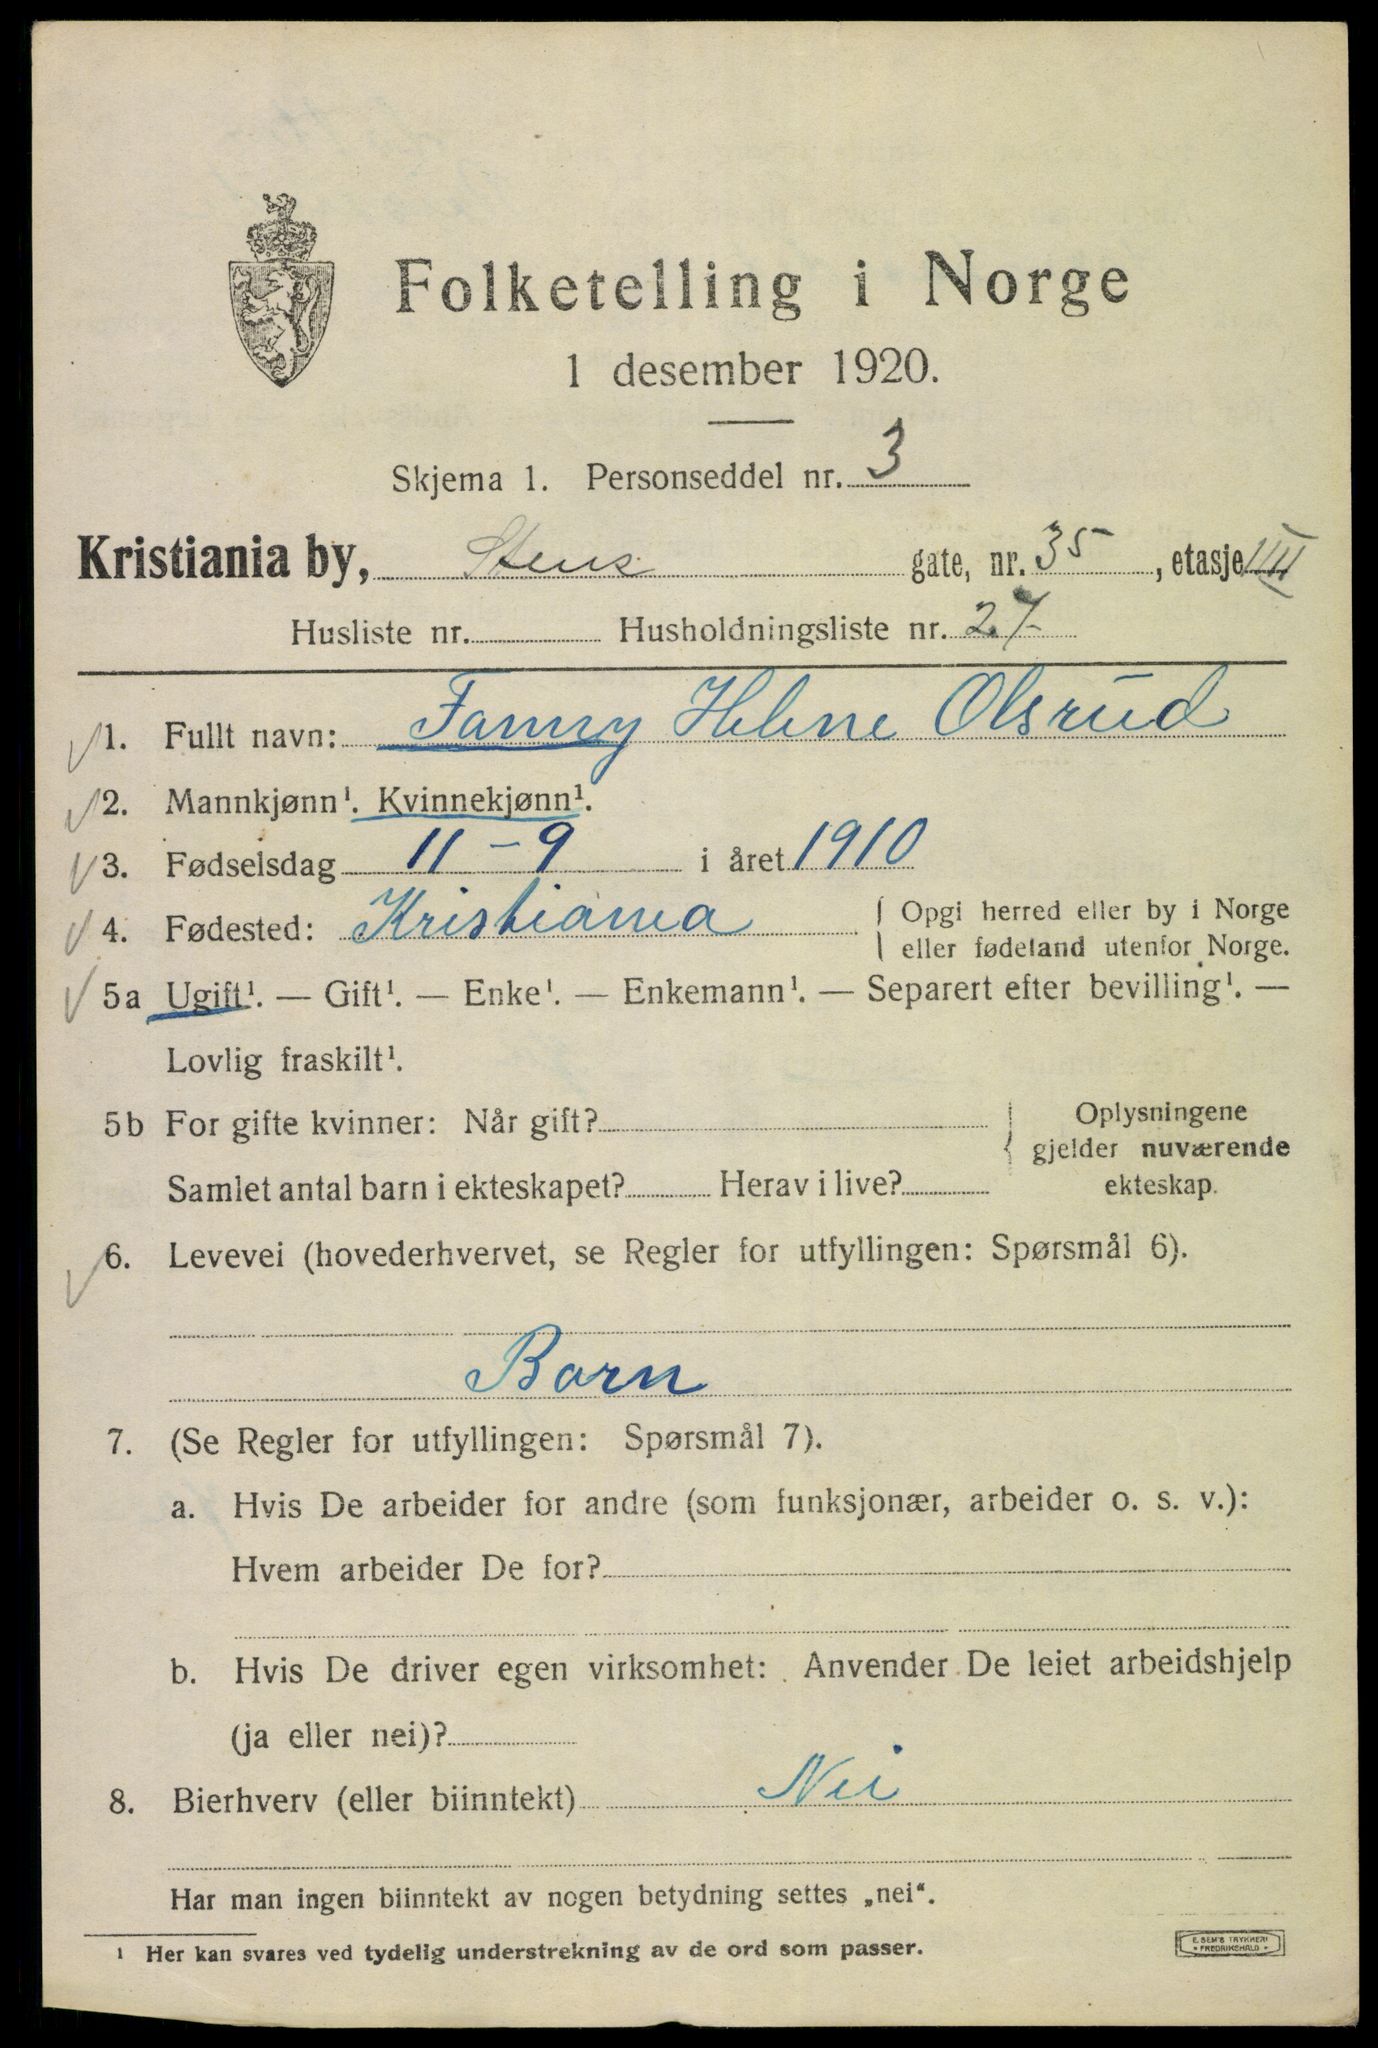 Folketelling i Norge
1 desember 1920.
Skjema 1. Personseddel nr. 3
Kristiania by, Stens gate, nr. 35, etasje
Husliste nr. Husholdningsliste nr. 27
1. Fullt navn: Fanny Helene Olsrud
2. Mannkjønn¹. Kvinnekjønn¹.
3. Fødselsdag 11-9 i året 1910
4. Fødested: Kristiania { Opgi herred eller by i Norge
eller fødeland utenfor Norge.
5a Ugift¹. — Gift¹. — Enke¹. — Enkemann¹. — Separert efter bevilling¹. —
Lovlig fraskilt¹.
5b For gifte kvinner: Når gift?
Samlet antal barn i ekteskapet? Herav i live?
{ Oplysningene
gjelder nuværende
ekteskap.
6. Levevei (hovederhvervet, se Regler for utfyllingen: Spørsmål 6).
Barn
7. (Se Regler for utfyllingen: Spørsmål 7).
a. Hvis De arbeider for andre (som funksjonær, arbeider o. s. v.):
Hvem arbeider De for?
b. Hvis De driver egen virksomhet: Anvender De leiet arbeidshjelp
(ja eller nei)?
8. Bierhverv (eller biinntekt) Nei
Har man ingen biinntekt av nogen betydning settes „nei“.
¹ Her kan svares ved tydelig understrekning av de ord som passer.
E. SEM'S TRYKKERI
• FREDRIKSHALD •